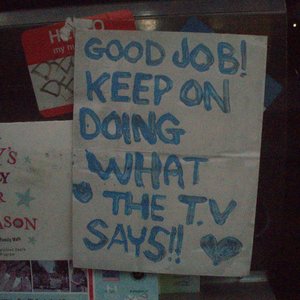 HELLO
my n
GOOD JOB!
KEEP ON
DOING
WHAT
THE T.V
SAYS!!
Y'S
Y
R
ASON